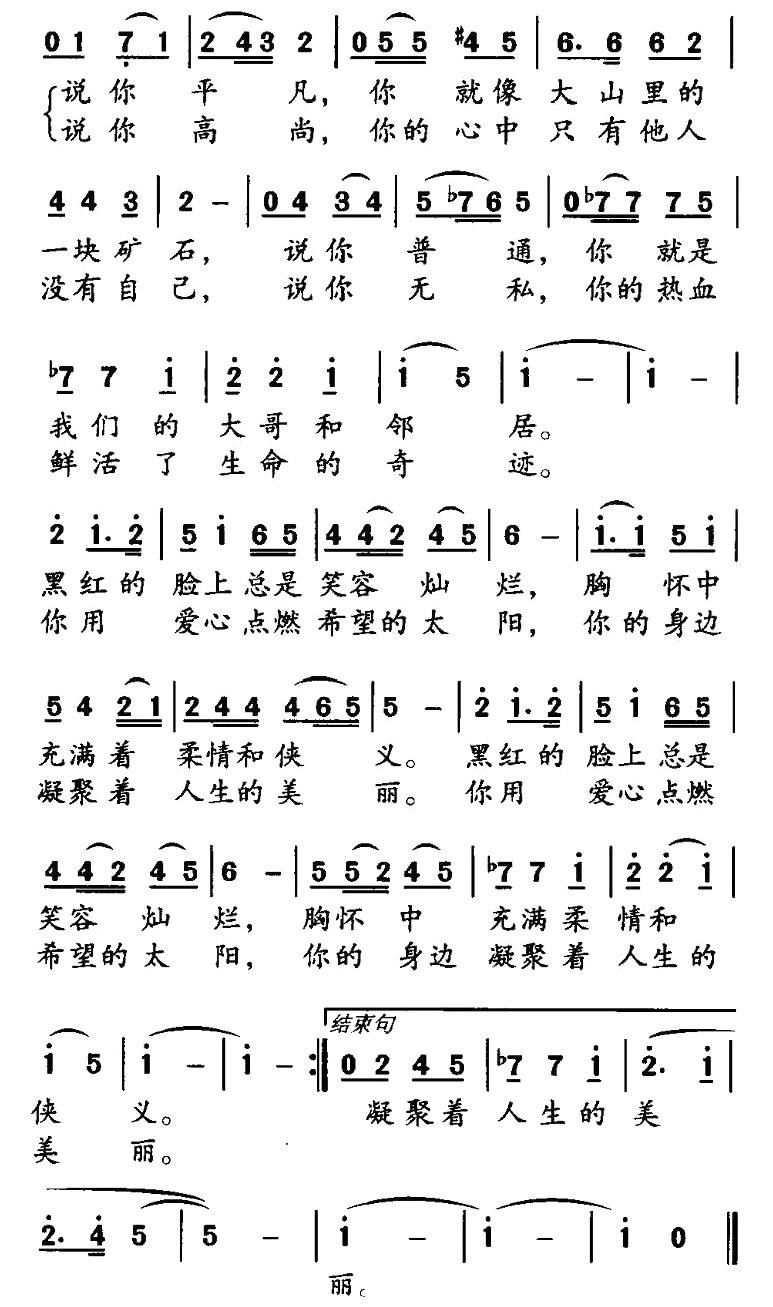 0 1 7 1 | 2 4 3 2 | 0 5 5 #4 5 | 6. 6 6 2 |
说你 平 凡，你 就像 大山里的
说你 高 尚，你的 心中 只有他人
4 4 3 | 2 － | 0 4 3 4 | 5 ♭7 6 5 | 0 ♭7 7 7 5 |
一块矿 石， 说你 普 通，你 就是
没有自 己， 说你 无 私，你的热血
♭7 7 1 | 2 2 1 | 1 5 | 1 － | 1 － |
我们的 大哥和 邻 居。
鲜活了 生命的 奇 迹。
2 1. 2 | 5 1 6 5 | 4 4 2 4 5 | 6 － | 1. 1 5 1 |
黑红的 脸上总是 笑容 灿 烂， 胸 怀中
你用 爱心点燃 希望的 太 阳， 你的身边
5 4 2 1 | 2 4 4 4 6 5 | 5 － | 2 1. 2 | 5 1 6 5 |
充满着 柔情和侠 义。 黑红的 脸上总是
凝聚着 人生的美 丽。 你用 爱心点燃
4 4 2 4 5 | 6 － | 5 5 2 4 5 | ♭7 7 1 | 2 2 1 |
笑容 灿 烂， 胸怀 中 充满柔 情和
希望的 太 阳， 你的 身边 凝聚着 人生的
结束句
1 5 | 1 － | 1 － :‖ 0 2 4 5 | ♭7 7 1 | 2. 1 |
侠 义。 凝聚着 人生的 美
美 丽。
2. 4 5 | 5 － | 1 － | 1 － | 1 0 ‖
丽。